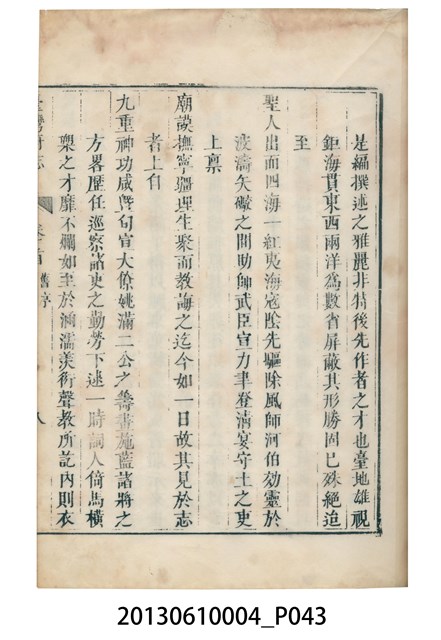 是編撰述之雅麗非特後先作者之才也臺地雄視
鉅海貫東西兩洋為數省屏蔽其形勝固已殊絕迨
至
聖人出而四海一紅夷海寇陰先驅除風師河伯効靈於
波濤矢礮之間助師武臣宣力聿登清宴守土之吏
上稟
廟謨撫寧疆理生聚而教誨之迄今如一日故其見於志
者上自
九重神功咸與旬宣大僚姚滿二公之籌畫施藍諸將之
方畧歷任巡察諸吏之勤勞下逮一時詞人倚馬橫
槊之才靡不燗如至於涵濡美衍聲教所訖內則衣
臺灣府志 卷首 舊序 八
20130610004_P043